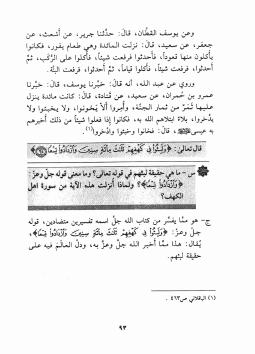 وعن يوسف القطّان، قال: حدّثنا جرير، عن أشعث، عن
جعفر، عن سعيد، قال: نزلت المائدة وهي طعام يفور، فكانوا
يأكلون منها قعوداً، فأحدثوا فرفعت شيئاً، فأكلوا على الرُّكب، ثمَّ
أحدثوا، فرفعت شيئاً، فأكلوا قياماً، ثمَّ أحدثوا، فرفعت البتَّة.
وروي عن عبد الله، أنه قال: حدَّثنا يوسف، قال: خبَّرنا
عمرو بن حُمران، عن سعيد، عن قتادة، قال: كانت مائدة ينزل
عليها ثَمَرٌ من ثمار الجنَّة، وأُمروا ألَّا يَخونوا، ولا يخبئوا ولا
يدَّخروا، بلاءً ابتلاهم الله به، فكانوا إذا فعلوا شيئاً من ذلك أخبرهم
به عيسى، قال: فخانوا وخبئوا وادَّخروا(١).
قال تعالى: ﴿وَلَبِثُوا فِي كَهْفِهِمْ ثَلَاثَ مِائَةٍ سِنِينَ وَازْدَادُوا تِسْعًا﴾
س - ما هي حقيقة لبثهم في قوله تعالى؟ وما معنى قوله جلَّ وعزَّ:
﴿وَازْدَادُوا تِسْعًا﴾؟ ولماذا أنزلت هذه الآية من سورة اهل
الكهف؟
ج- هو ممّا يفسَّر من كتاب الله جلَّ اسمه تفسيرين متضادين، قوله
جلَّ وعزَّ: ﴿وَلَبِثُوا فِي كَهْفِهِمْ ثَلَاثَ مِائَةٍ سِنِينَ وَازْدَادُوا تِسْعًا﴾،
يُقال: هذا ممَّا أخبر الله جلَّ وعزَّ به، ودلَّ العالَم فيه على
حقيقة لبثهم.
(١) الباقلاني ص٤٦٣.
٩٣